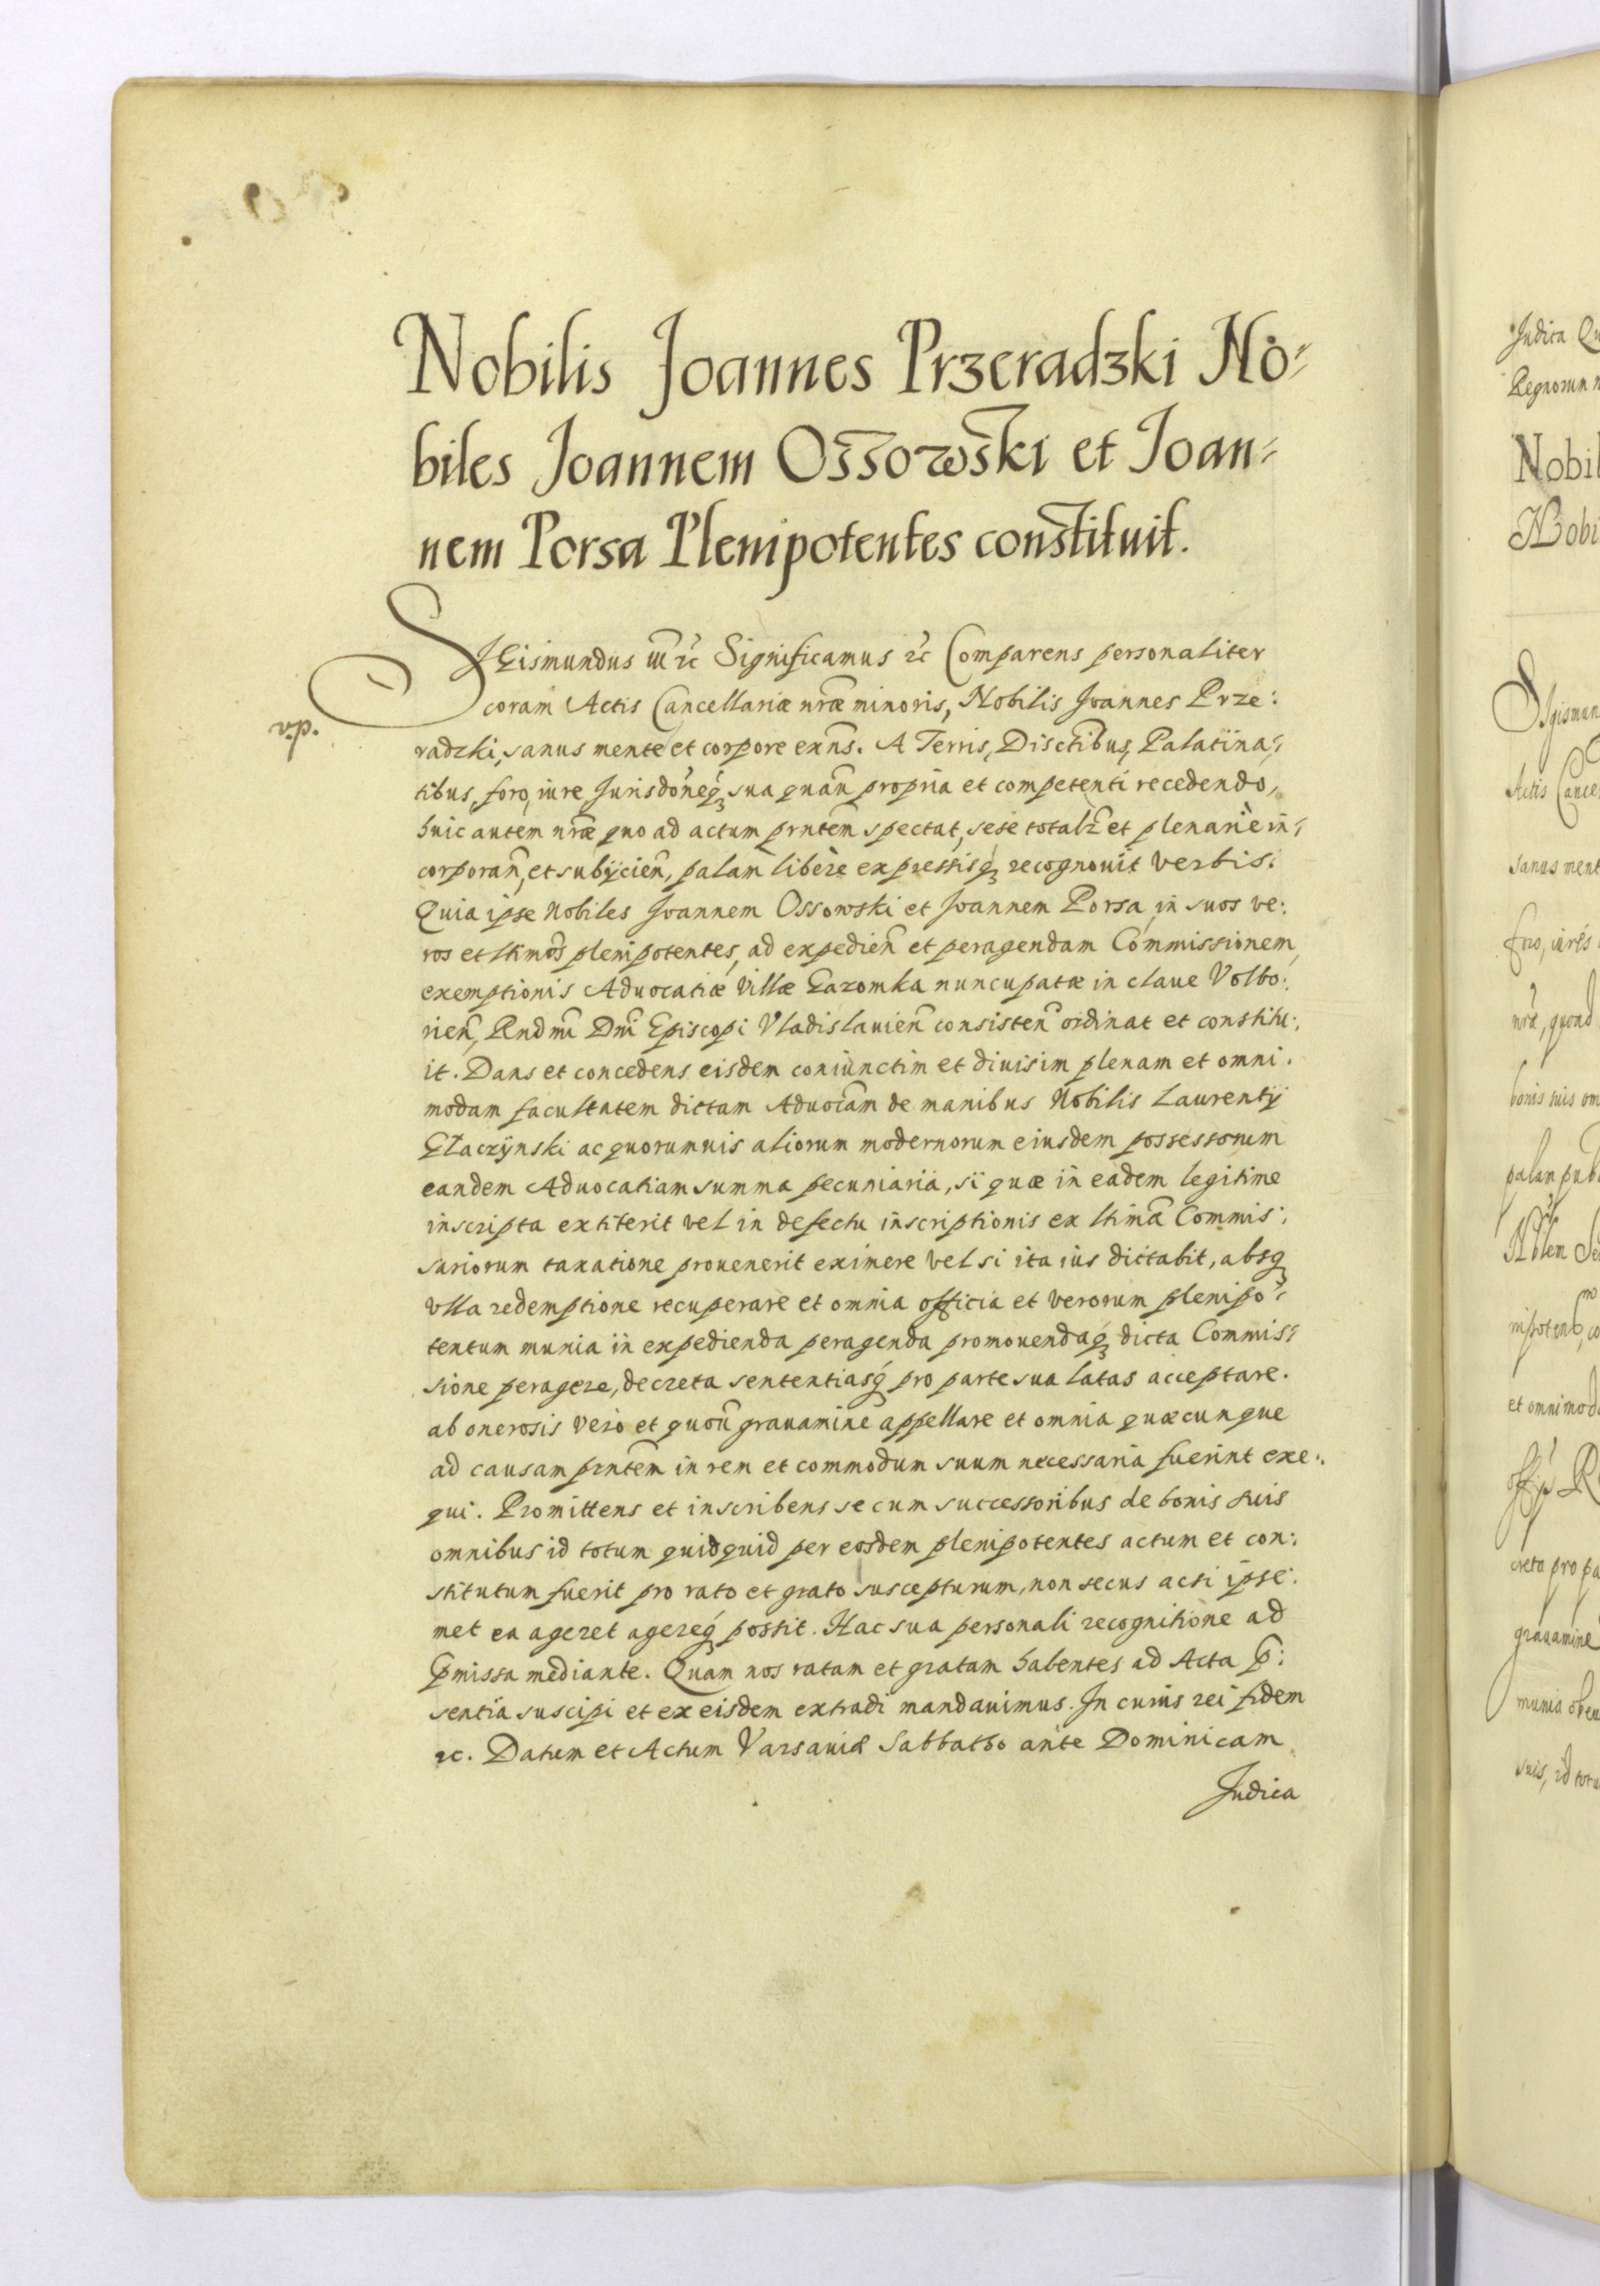 Nobilis Joannes Przeradzki No-
biles Joannem Ossowski et Joan-
nem Porsa Plenipotentes constituit.
SIgismundus III etc Significamus etc Comparens personaliter
coram Actis Cancellariæ nræ minoris, Nobilis Joannes Prze:
v.p.
radzki, sanus mente et corpore exns. A Terris, Disctibus, Palatina-
tibus, foro, iure Jurisdoneq sua quam propria et competenti recedendo,
huic autem nræ quo ad actum prntem spectat, sese totalr et plenarie in-
corporan, et subÿcien, palam libere expressisq recognouit verbis:
Quia ipse Nobiles Joannem Ossowski et Joannem Porsa in suos ve:
ros et ltimos plenipotentes, ad expedien et peragendam Commissionem
exemptionis Aduocatiæ Villæ Gazomka nuncupatæ in claue Volbo:
rien, Rndmi Dni Episcopi Vladislauien consisten ordinat et constitu:
it. Dans et concedens eisdem coniunctim et diuisim plenam et omni:
modam facultatem dictam Aduocam de manibus Nobilis Laurentÿ
Głaczÿnski ac quorumuis aliorum modernorum eiusdem possessorum
eandem Aduocatiam summa pecuniaria, si quæ in eadem legitime
inscripta extiterit vel in defectu inscriptionis ex ltima Commis:
sariorum taxatione prouenerit eximere vel si ita ius dictabit, absq
vlla redemptione recuperare et omnia officia et verorum plenipo-
tentum munia in expedienda peragenda promouendaq dicta Commis-
sione peragere, decreta sententiasq pro parte sua latas acceptare.
ab onerosis vero et quoru grauamine appellare et omnia quæcunque
ad causam prntem in rem et commodum suum necessaria fuerint exe:
qui. Promittens et inscribens se cum successoribus de bonis suis
omnibus id totum quidquid per eosdem plenipotentes actum et con:
stitutum fuerit pro rato et grato suscepturum, non secus acsi ipse:
met ea ageret agereq possit. Hac sua personali recognitione ad
pmissa mediante. Quam nos ratam et gratam habentes ad Acta p:
sentia suscipi et ex eisdem extradi mandauimus. In cuius rei fidem
etc. Datum et Actum Varsauiæ Sabbatho ante Dominicam
Judica
Judica
Nobil
Nobi
Actis Cance
sanus ment
palam pub
et omnimod
grauamine